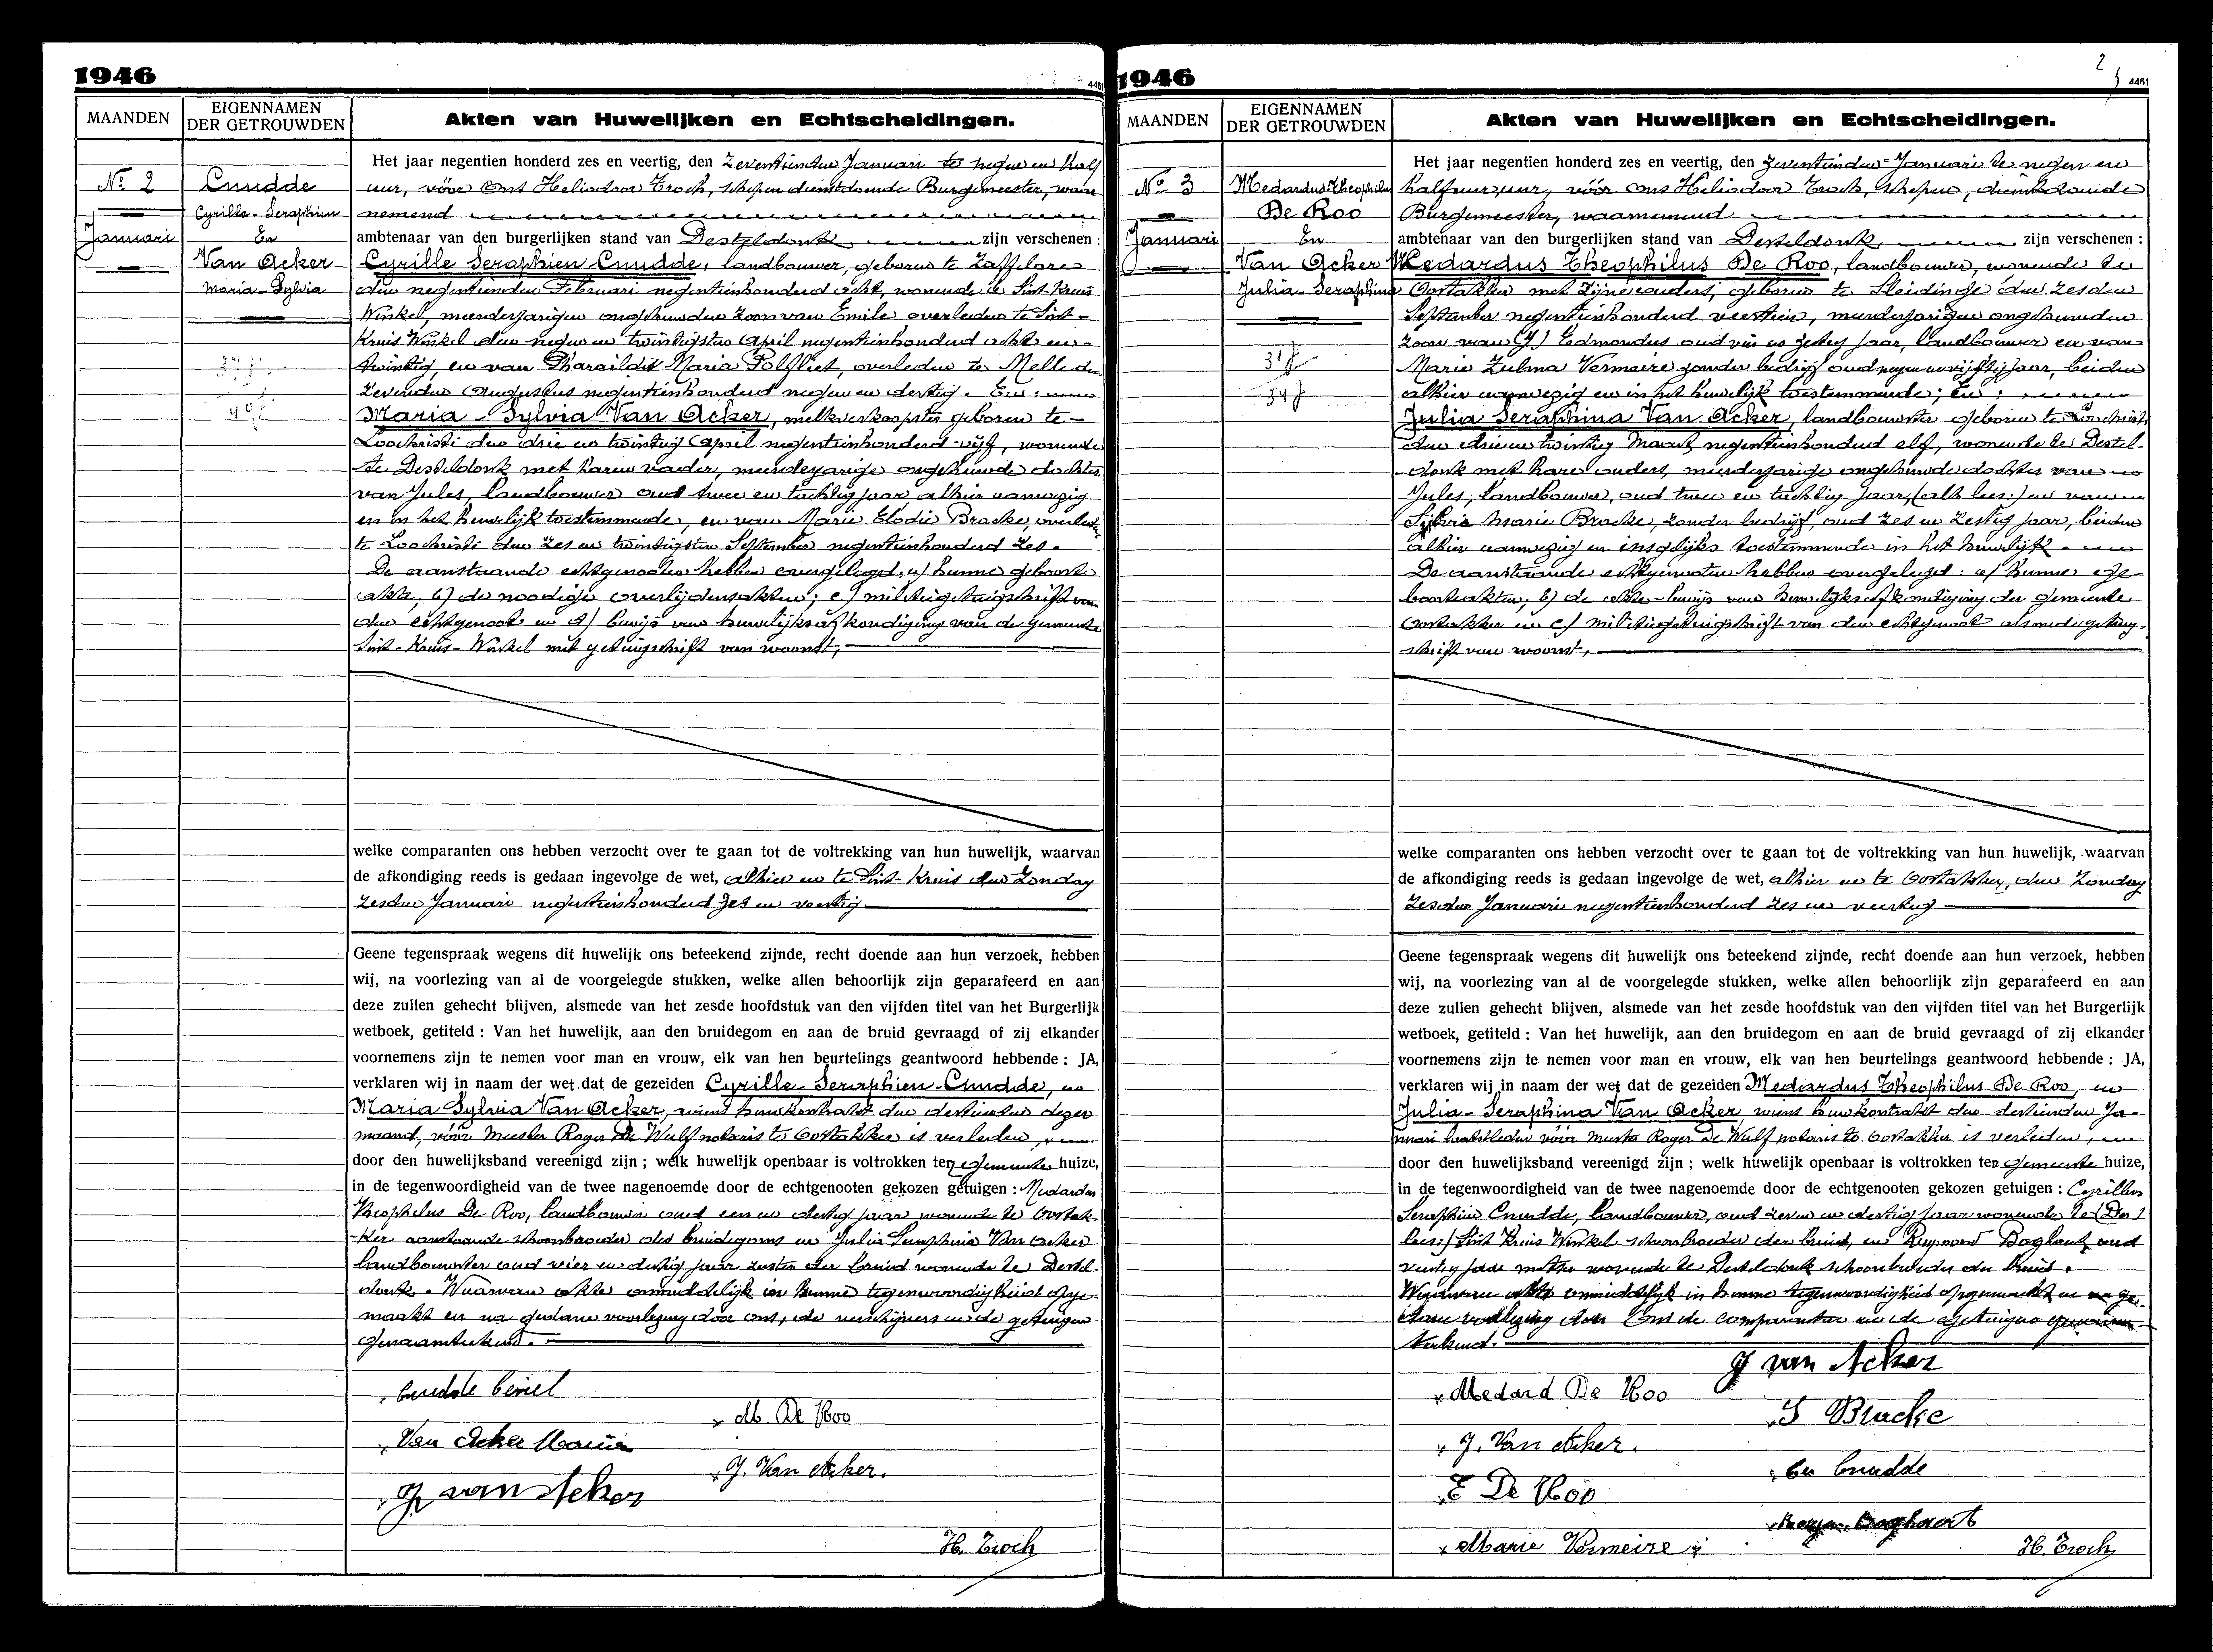 1946
4461
MAANDEN
EIGENNAMEN
DER GETROUWDEN
Akten van Huwelijken en Echtscheidingen.
No 2
Januari
Cnudde
Cyrille-Seraphien
En
Van Acker
Maria-Sylvia
40 j
Het jaar negentien honderd zes en veertig, den zeventienden Januari te negen en half
uur, vóór Ons Heliodoor Troch, schepen dienstdoende Burgemeester, waar
nemend
ambtenaar van den burgerlijken stand van Desteldonk zijn verschenen :
Cyrille Seraphien Cnudde, landbouwer, geboren te Zaffelare
den negentienden Februari negentienhonderd acht, wonende te Sint-Kruis
Winkel, meerderjarigen ongehuwden zoon van Emile overleden te Sint-
Kruis Winkel den negen en twintigsten April negentienhonderd acht en
twintig, en van Pharaildis Maria Polfliet, overleden te Melle den
zevenden Augustus negentienhonderd negen en dertig. En :
Maria-Sylvia Van Acker, melkverkoopster geboren te
Loochristi den drie en twintig April negentienhonderd vijf, wonende
te Desteldonk met haren vader, meerderjarige ongehuwde dochter
van Jules, landbouwer oud twee en tachtig jaar alhier aanwezig
en in het huwelijk toestemmende, en van Marie Elodie Bracke, overleden
te Loochristi den zes en twintigsten September negentienhonderd zes.
De aanstaande echtgenooten hebben overgelegd : a) hunne geboorte
akte, b) de noodige overlijdensakten; c) militiegetuigschrift van
den echtgenoot en d) bewijs van huwelijksafkondiging van de gemeente
Sint-Kruis-Winkel met getuigschrift van woonst,
welke comparanten ons hebben verzocht over te gaan tot de voltrekking van hun huwelijk, waarvan
de afkondiging reeds is gedaan ingevolge de wet, alhier en te Sint-Kruis den Zondag
zesden Januari negentienhonderd zes en veertig
Geene tegenspraak wegens dit huwelijk ons beteekend zijnde, recht doende aan hun verzoek, hebben
wij, na voorlezing van al de voorgelegde stukken, welke allen behoorlijk zijn geparafeerd en aan
deze zullen gehecht blijven, alsmede van het zesde hoofdstuk van den vijfden titel van het Burgerlijk
wetboek, getiteld : Van het huwelijk, aan den bruidegom en aan de bruid gevraagd of zij elkander
voornemens zijn te nemen voor man en vrouw, elk van hen beurtelings geantwoord hebbende : JA,
verklaren wij in naam der wet dat de gezeiden Cyrille-Seraphien-Cnudde, en
Maria Sylvia Van Acker, wiens huwkontrakt den dertienden dezer
maand, vóór meester Roger De Wulf notaris te Oostakker is verleden,
door den huwelijksband vereenigd zijn ; welk huwelijk openbaar is voltrokken ten gemeente huize,
in de tegenwoordigheid van de twee nagenoemde door de echtgenooten gekozen getuigen : Medardus
Theophilus De Roo, landbouwer oud een en dertig jaar wonende te Oostak-
-ker aanstaande schoonbroeder des bruidegoms en Julia Seraphina Van Acker
landbouwster oud vier en dertig jaar zuster der bruid wonende te Destel-
donk. Waarvan akte onmiddelijk in hunne tegenwoordigheid opge-
maakt en na gedane voorlezing door ons, de verschijners en de getuigen
genaamteekend.
Cnudde Ceriel
M. De Roo
Van Acker Maria
J. Van Acker.
J van Acker
H. Troch
1946
2
4461
MAANDEN
EIGENNAMEN
DER GETROUWDEN
Akten van Huwelijken en Echtscheidingen.
No 3
Januari
Medardus-Theophilus
De Roo
En
Van Acker
Julia-Seraphina
31 j
34 j
Het jaar negentien honderd zes en veertig, den zeventienden Januari te negen en
half uur, vóór ons Heliodoor Troch, schepen, dienstdoende
Burgemeester, waarnemend
ambtenaar van den burgerlijken stand van Desteldonk, zijn verschenen :
Medardus Theophilus De Roo, landbouwer, wonende te
Oostakker met zijne ouders, geboren te Sleidinge den zesden
September negentienhonderd veertien, meerderjarigen ongehuwden
zoon van Edmondus oud vier en zestig jaar, landbouwer en van
Marie Zulma Vermeire zonder bedrijf oud negen en vijftig jaar, beiden
alhier aanwezig en in het huwelijk toestemmende; En :
Julia Seraphina Van Acker, landbouwster geboren te Loochristi
den drie en twintig Maart negentienhonderd elf, wonende te Destel-
-donk met hare ouders, meerderjarige ongehuwde dochter van
Jules, landbouwer, oud twee en tachtig jaar, en van
Sylvie Marie Bracke, zonder bedrijf, oud zes en zestig jaar, beiden
alhier aanwezig en insgelijks toestemmende in het huwelijk.
De aanstaande echtgenooten hebben overgelegd : a) hunne ge-
boorteakten; b) de akte-bewijs van huwelijksafkondiging der gemeente
Oostakker en c) militiegetuigschrift van den echtgenoot alsmede getuig-
schrift van woonst,
welke comparanten ons hebben verzocht over te gaan tot de voltrekking van hun huwelijk, waarvan
de afkondiging reeds is gedaan ingevolge de wet, alhier en te Oostakker, den Zondag
zesden Januari negentienhonderd zes en veertig
Geene tegenspraak wegens dit huwelijk ons beteekend zijnde, recht doende aan hun verzoek, hebben
wij, na voorlezing van al de voorgelegde stukken, welke allen behoorlijk zijn geparafeerd en aan
deze zullen gehecht blijven, alsmede van het zesde hoofdstuk van den vijfden titel van het Burgerlijk
wetboek, getiteld : Van het huwelijk, aan den bruidegom en aan de bruid gevraagd of zij elkander
voornemens zijn te nemen voor man en vrouw, elk van hen beurtelings geantwoord hebbende : JA,
verklaren wij in naam der wet dat de gezeiden Medardus Theophilus De Roo, en
Julia-Seraphina Van Acker wiens huwkontrakt den dertienden Ja-
nuari laatstleden vóór meester Roger De Wulf notaris te Oostakker is verleden, en
door den huwelijksband vereenigd zijn ; welk huwelijk openbaar is voltrokken ten gemeente huize,
in de tegenwoordigheid van de twee nagenoemde door de echtgenooten gekozen getuigen : Cyrillus
Seraphien Cnudde, landbouwer, oud zeven en dertig jaar wonende te (Des)
lees:) Sint Kruis Winkel schoonbroeder der bruid, en Raymond Boghaert, oud
veertig jaar wonende te Desteldonk schoonbroeder der bruid.
Waarvan akte onmiddelijk in hunne tegenwoordigheid opgemaakt en na ge-
dane voorlezing door Ons de comparanten en de getuigen
teekend.
J van Acker
Medard De Roo
S Bracke
J. Van Acker.
Cer Cnudde
E De Roo
Boghaert
Marie Vermeire
H. Troch